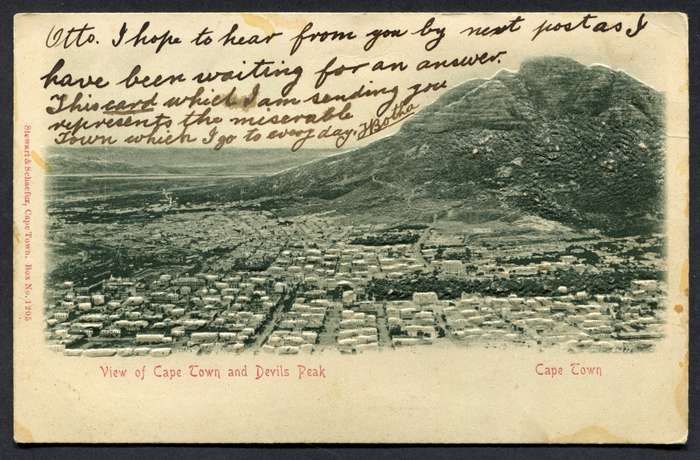 Otto. I hope to hear from you by next post as I
have been waiting for an answer.
This card which I am sending you
represents the miserable
Town which I go to every day, JBotha
Stewart & Schaefer, Cape Town. Box No. 1205
View of Cape Town and Devils Peak
Cape Town